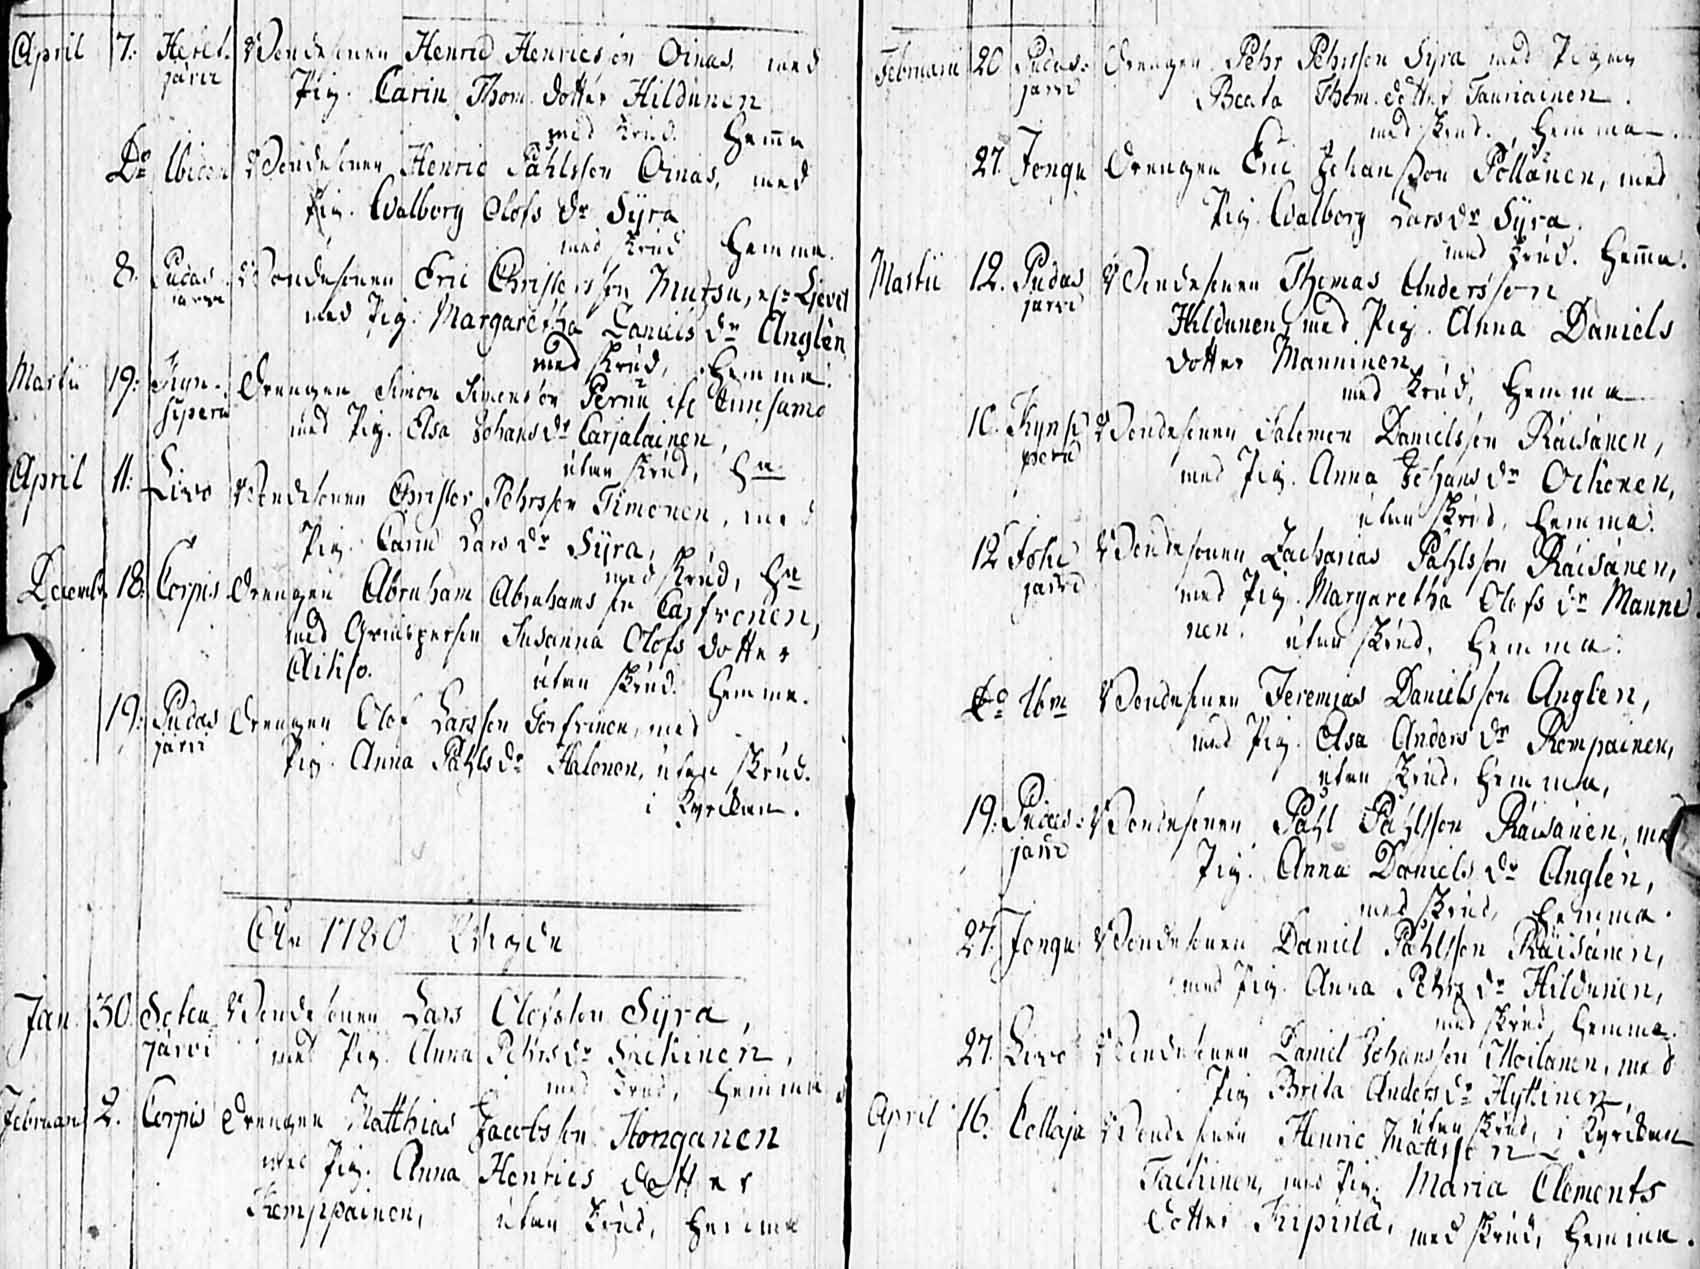 April 7: Heret- Bondesonen Henric Henricsson Oinas, med
järvi Pig. Carin Thom. dotter Hildunen
med krud. Hemma
Do Ibidem Bondesonen Henric Påhlsson Oinas, med
Pig. Walborg Olofs dr Syra
med krud Hemma.
8. Pudas Bondesonen Eric Christersson
järvi med Pig. Margaretha Daniels dr Anglèn
med skrud, Hemma.
Martii 19: Drengen Simon Simonsson Pernu
med Pig. Elsa Johans dr Carjalainen,
utan skrud, Ha
April 11: Livo Bondesonen Christer Pehrsson Timonen, med
Pig. Carin Lars dr Syra,
med skrud, Ha
Decemb. 18. Corpis Drengen Abraham Abrahamsson
med Susanna Olofs dotter
utan skrud. Hemma.
19: Pudas Drengen Olof Larsson med
järvi Pig. Anna Påhls dr Halonen, utan skrud.
i Kyrckan.
År 1780 Wigde
Jan. 30 Soten Bondesonen Lars Olofsson Syra,
järvi med Pig. Anna Pehrs dr
med krud, Hemma
Februari 2. Corpis Drengen Matthias Jacobsson Honganen
med Pig. Anna Henrics dotter
Kemppainen, utan krud, Hemma
Februarii 20 Pudas- Drengen Pehr Pehrsson Syra med Pigan
järvi Beata Thom. dotter Tauriainen.
med skrud. Hemma
27. Jongu Drengen Eric Johansson Pöllänen, med
Pig. Walborg Lars dr Syra.
med krud. Hemma.
Martii 12. Pudas Bondesonen Thomas Andersson
järvi Hildunen, med Pig. Anna Daniels
dotter Manninen
med krud, Hemma
Bondesonen Salomon Danielsson Räisänen,
perä med Pig. Anna Johans dr
utan skrud, Hemma.
12 Joki Bondesonen Zacharias Påhlsson Räisänen,
järvi med Pig. Margaretha Olofs dr Manni
nen. utan skrud, Hemma.
Do Ibm Bondesonen Jeremias Danielsson Anglen,
med Pig. Anders dr
utan krud, Hemma,
19. Pudas- Bondesonen Påhl Påhlsson Räisänen, med
järvi Pig. Anna Daniels dr Anglèn,
med skrud, Hemma.
27. Jongu Bondesonen Daniel Påhlsson Räisänen,
med Pig. Anna Pehrs dr Hildunen,
med skrud, Hemma.
27. Livo Bondesonen Daniel Johansson Moilanen, med
Pig Brita Anders dr Hyttinen,
utan skrud, i Kyrckan
April 16. Collaja Bondesonen Henric Mattsson
med Pig. Maria Clements
dotter Kipinä, med skrud, Hemma.